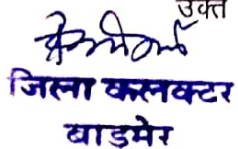 उक्त
जिला कलक्टर
बाडमेर